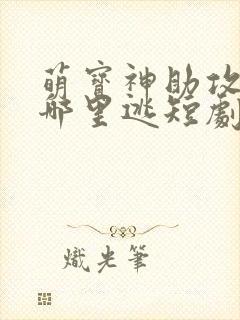 萌寶神助攻
哪里逃短劇
熾光筆